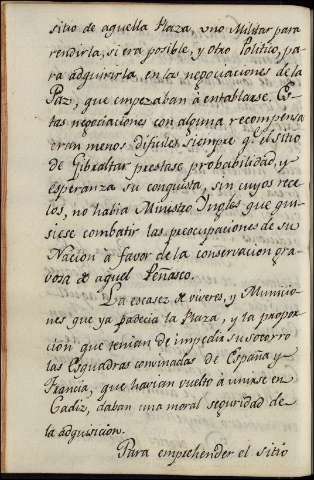 sitio de aquella Plaza, uno Militar para
rendirla, si era posible, y otro Politico, pa-
ra adquirirla, en las negociaciones de la
Paz, que empezaban à entablarse. Es-
tas negociaciones con alguna recompensa
eran menos dificiles, siempre qe. el sitio
de Gibraltar prestase probabilidad, y
esperanza su conquista, sin cuyos rece-
los, no habia Ministro Ingles que qui-
siese combatir las preocupaciones de su
Nacion à favor de la conservacion gra-
vosa de aquel Peñasco.
La escasez de viveres, y Municio-
nes que ya padecia la Plaza, y la propor-
cion que tenian de impedir su socorro
las Esquadras convinadas de España y
Francia, que havian vuelto à unirse en
Cadiz, daban una moral seguridad de
la adquisicion.
Para emprehender el sitio